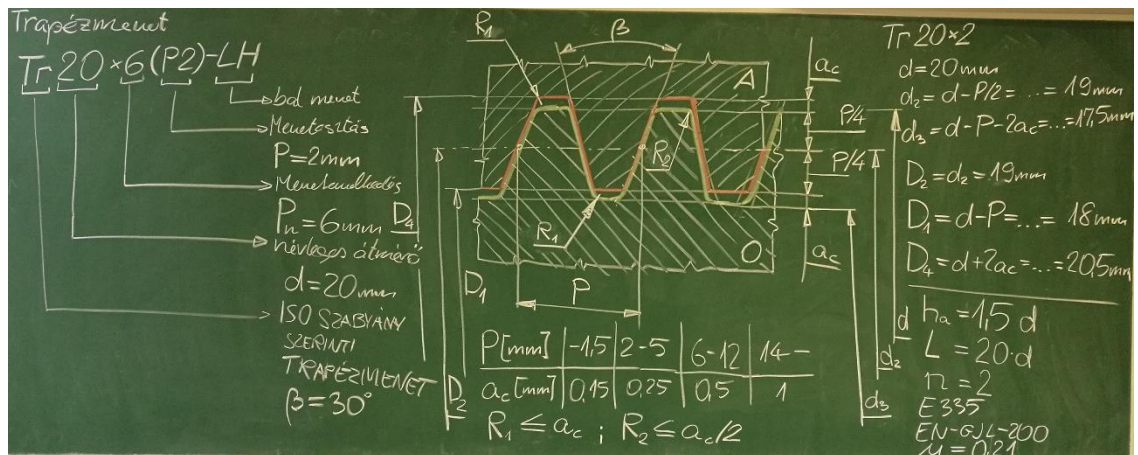 Trapézmenet
Tr 20 × 6 (P2) - LH
bal menet
Menetosztás
P = 2mm
Menetemelkedés
Pn = 6mm
névleges átmérő
d = 20mm
ISO SZABVÁNY
SZERINTI
TRAPÉZMENET
β = 30°
R1
β
A
ac
P/4
P/4
ac
R2
R1
O
P
D4
D1
D2
d
d2
d3
P[mm] -1,5 2-5 6-12 14-
ac[mm] 0,15 0,25 0,5 1
R1 ≤ ac ; R2 ≤ ac/2
Tr 20×2
d = 20mm
d2 = d - P/2 = ... = 19mm
d3 = d - P - 2ac = ... = 17,5mm
D2 = d2 = 19mm
D1 = d - P = ... = 18mm
D4 = d + 2ac = ... = 20,5mm
ha = 1,5 d
L = 20·d
n = 2
E335
EN-GJL-200
μ = 0,21